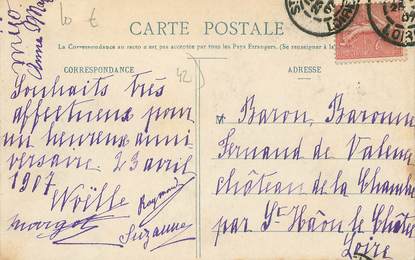 10 €
CARTE POSTALE
La Correspondance au recto n'est pas acceptée par tous les Pays Étrangers. (Se renseigner à la
CORRESPONDANCE
42
ADRESSE
Anna
Souhaits très
affectueux pour
un heureux anni-
versaire. 23 avril
1907
Noëlle
Raymond
Margot
Suzanne
Baron, Baronne
Fernand de Valence
château de la Chambre
par St Hâon le Châtel
Loire